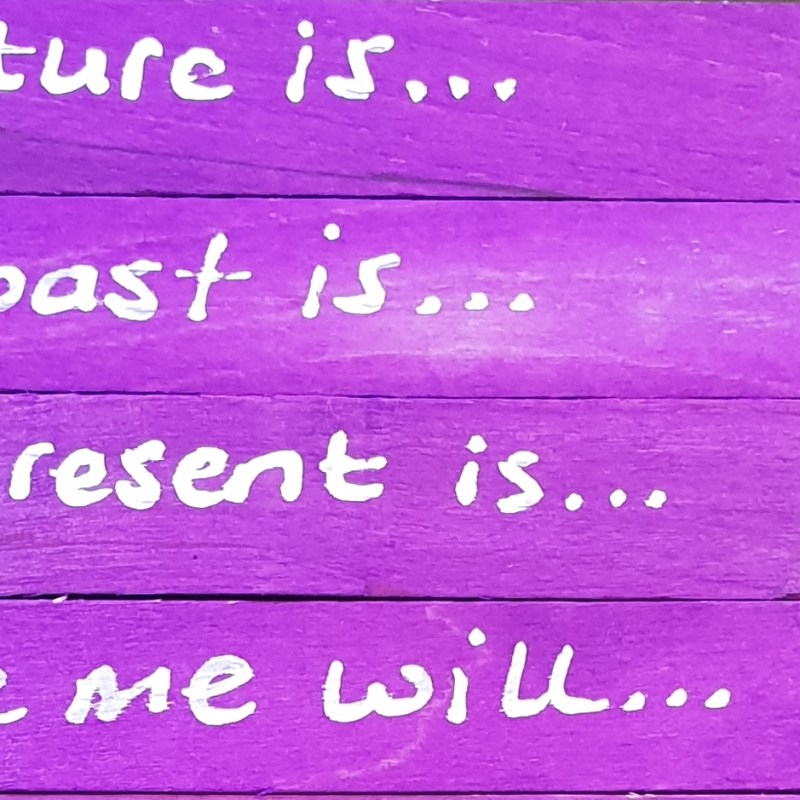 ture is...
past is...
resent is...
e me will...